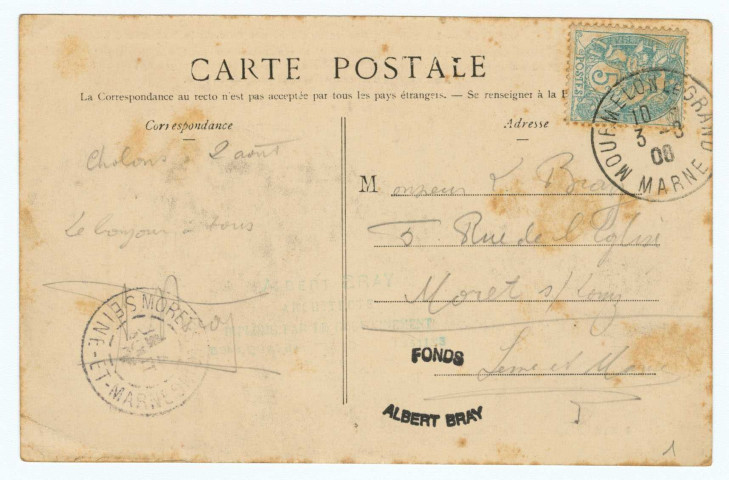 CARTE POSTALE
La Correspondance au recto n'est pas acceptée par tous les pays étrangers. — Se renseigner à la
Correspondance
Adresse
5
POSTES
MOURMELON LE GRAND
10
3 - 8
00
MARNE
Chalons 2 août
Le bonjour à tous
Monsieur Bray
5 Rue de l'Eglise
Moret s/ Loing
Seine et
MORET
SEINE-ET-MARNE
FONDS
ALBERT BRAY
1